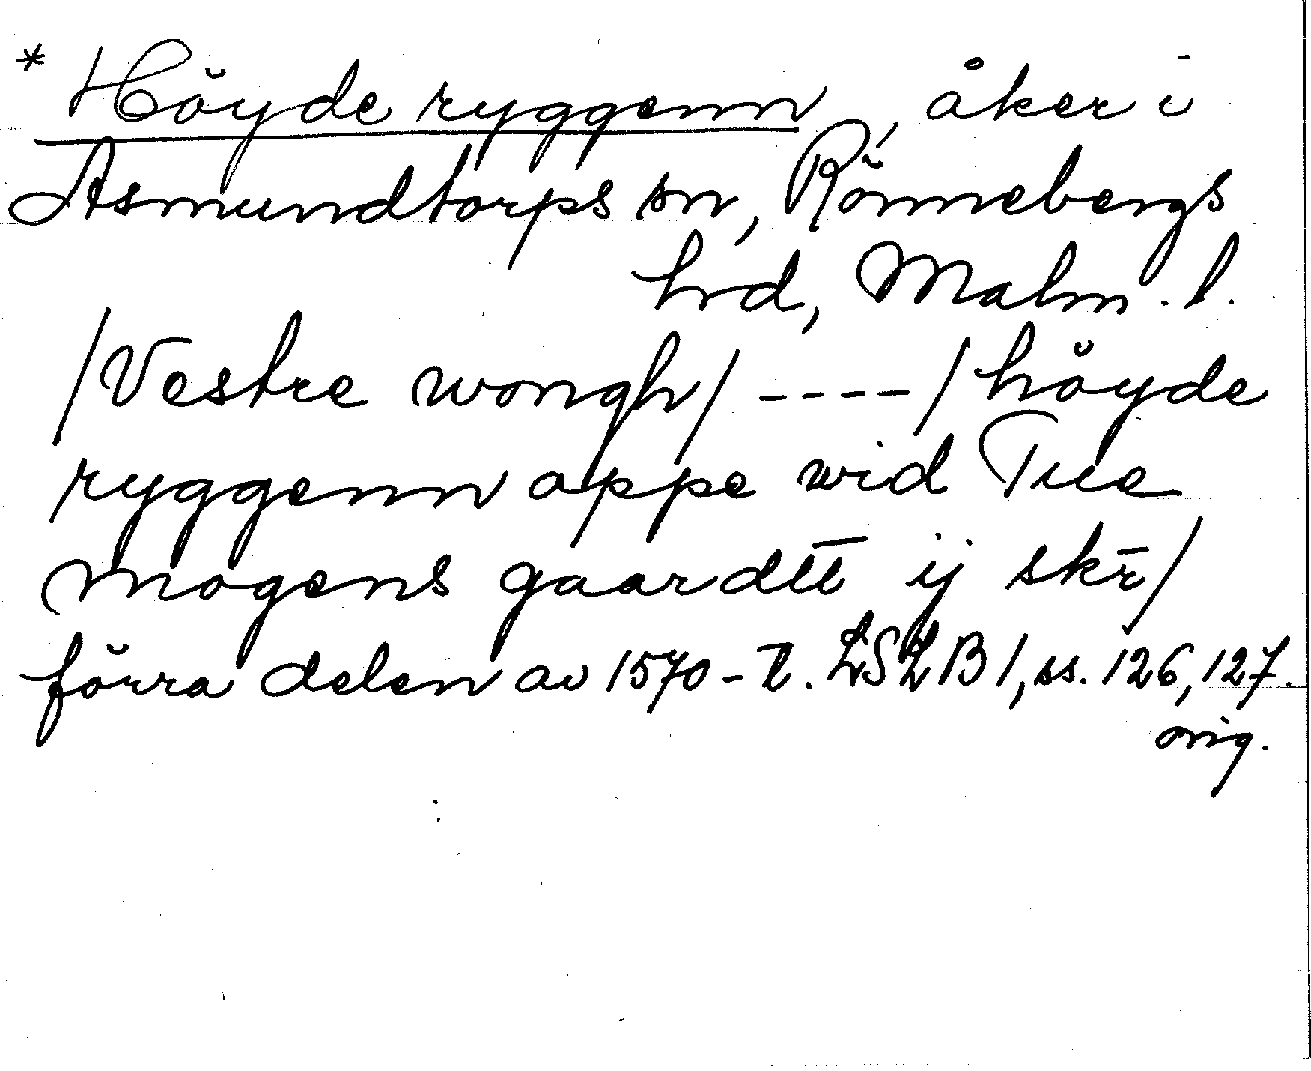 * Höyde ryggenn, åker i
Asmundtorps sn, Rönnebergs
hrd, Malm. l.
/Vestre wongh/ ---- / höyde
ryggenn oppe wid Tue
mogens gaardtt ij skr̄/
förra delen av 1570-t. LSLB1, ss. 126, 127.
orig.